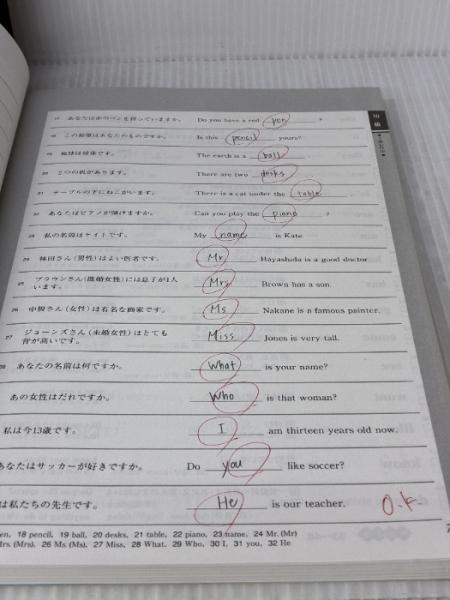 17 あなたは赤いペンを持っていますか。 Do you have a red pen ?
18 この鉛筆はあなたのものですか。 Is this pencil yours?
19 地球は球体です。 The earth is a ball.
20 2つの机があります。 There are two desks.
21 テーブルの下にねこがいます。 There is a cat under the table.
22 あなたはピアノが弾けますか。 Can you play the piano ?
23 私の名前はケイトです。 My name is Kate.
24 林田さん(男性)はよい医者です。 Mr. Hayashida is a good doctor.
25 ブラウンさん(既婚女性)には息子が1人 Mrs. Brown has a son.
います。
26 中根さん(女性)は有名な画家です。 Ms. Nakane is a famous painter.
27 ジョーンズさん(未婚女性)はとても Miss Jones is very tall.
背が高いです。
28 あなたの名前は何ですか。 What is your name?
あの女性はだれですか。 Who is that woman?
私は今13歳です。 I am thirteen years old now.
あなたはサッカーが好きですか。 Do you like soccer?
は私たちの先生です。 He is our teacher.
O.K.
en, 18 pencil, 19 ball, 20 desks, 21 table, 22 piano, 23 name, 24 Mr. (Mr)
Mrs. (Mrs), 26 Ms. (Ms), 27 Miss, 28 What, 29 Who, 30 I, 31 you, 32 He
初級